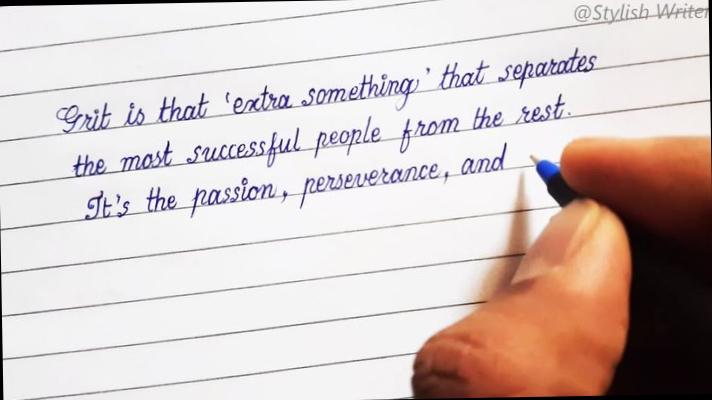 @Stylish Writer
Grit is that 'extra something' that separates
the most successful people from the rest.
It's the passion, perseverance, and